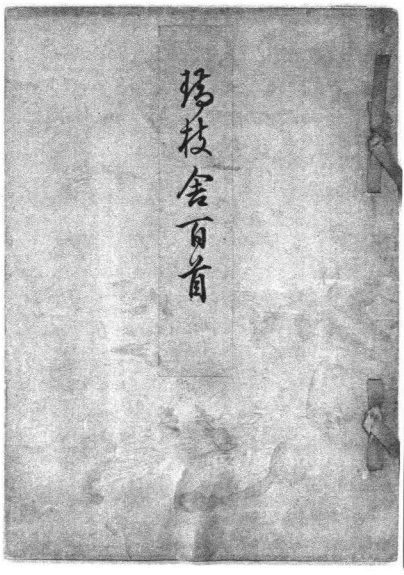 瑞枝舎百首